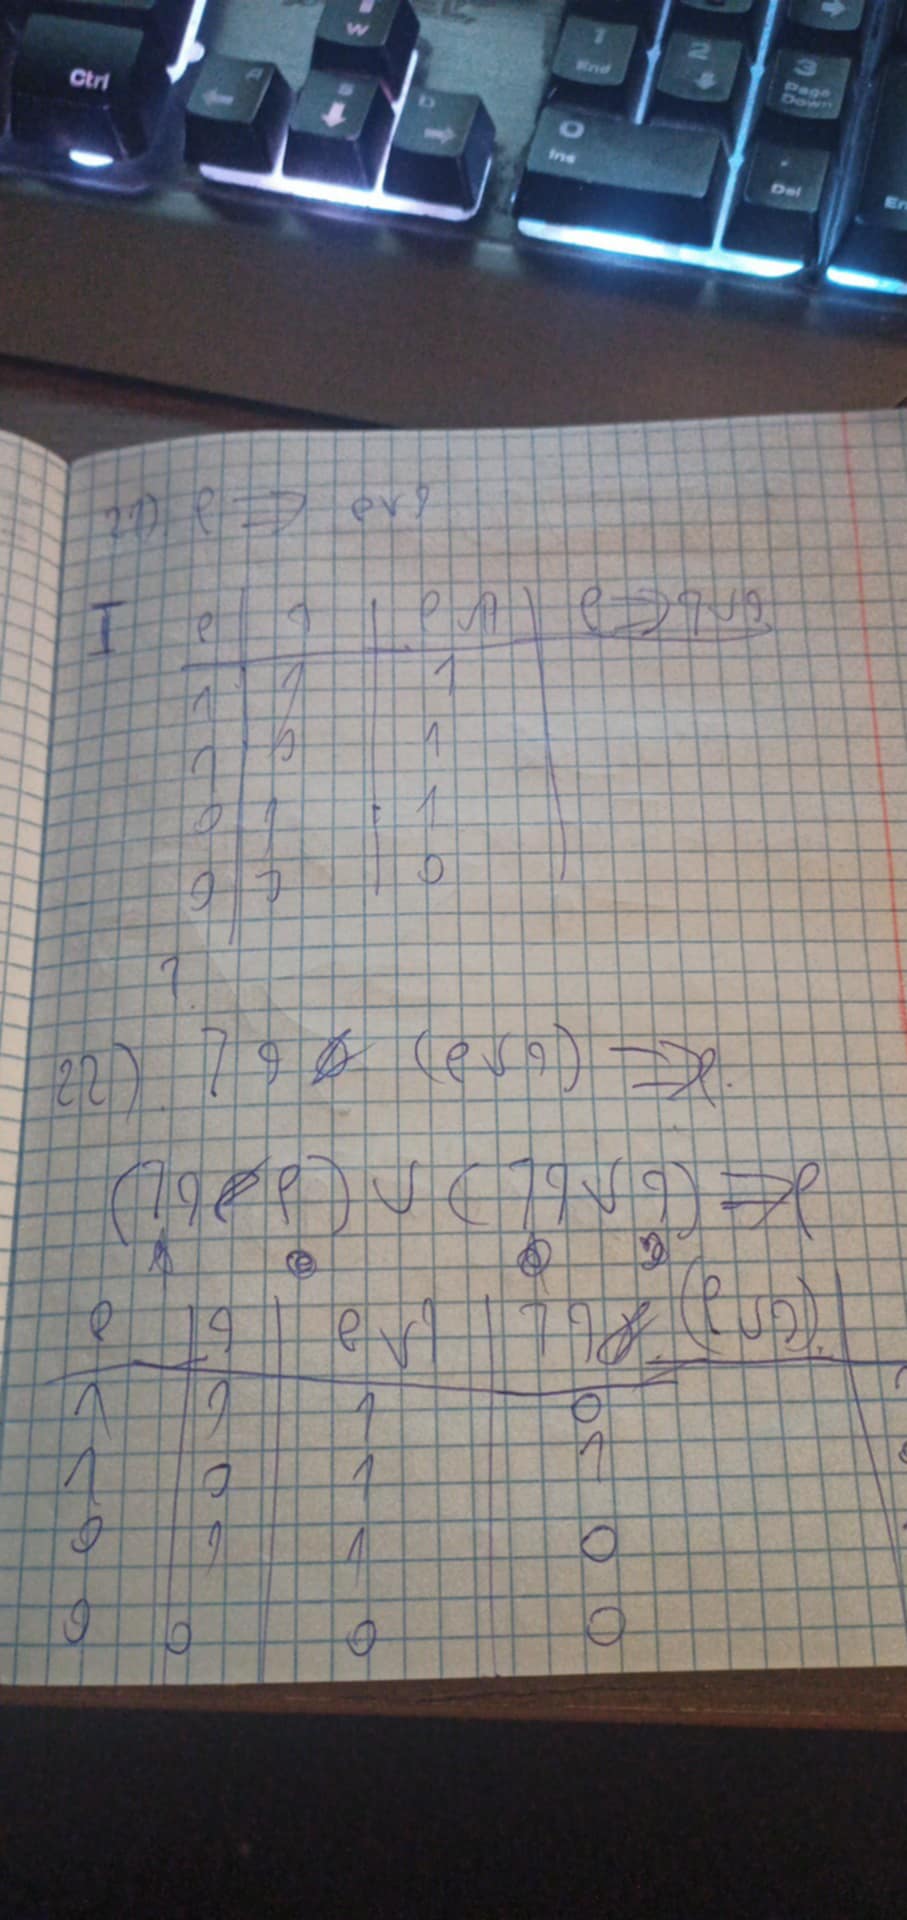 Ctrl
W
A
S
D
1
End
2
3
Page
Down
0
Ins
.
Del
En
21) p ⇒ p∨q
I
p | q | p∨q | p ⇒ q∨q
1 | 1 | 1 |
1 | 0 | 1 |
0 | 1 | 1 |
0 | 0 | 0 |
1
22) ¬q (p∨q) ⇒ p.
(¬q p) ∨ (¬q ∨ q) ⇒ p
p | q | p∨q | ¬q (p∨q).
1 | 1 | 1 | 0
1 | 0 | 1 | 1
0 | 1 | 1 | 0
0 | 0 | 0 | 0